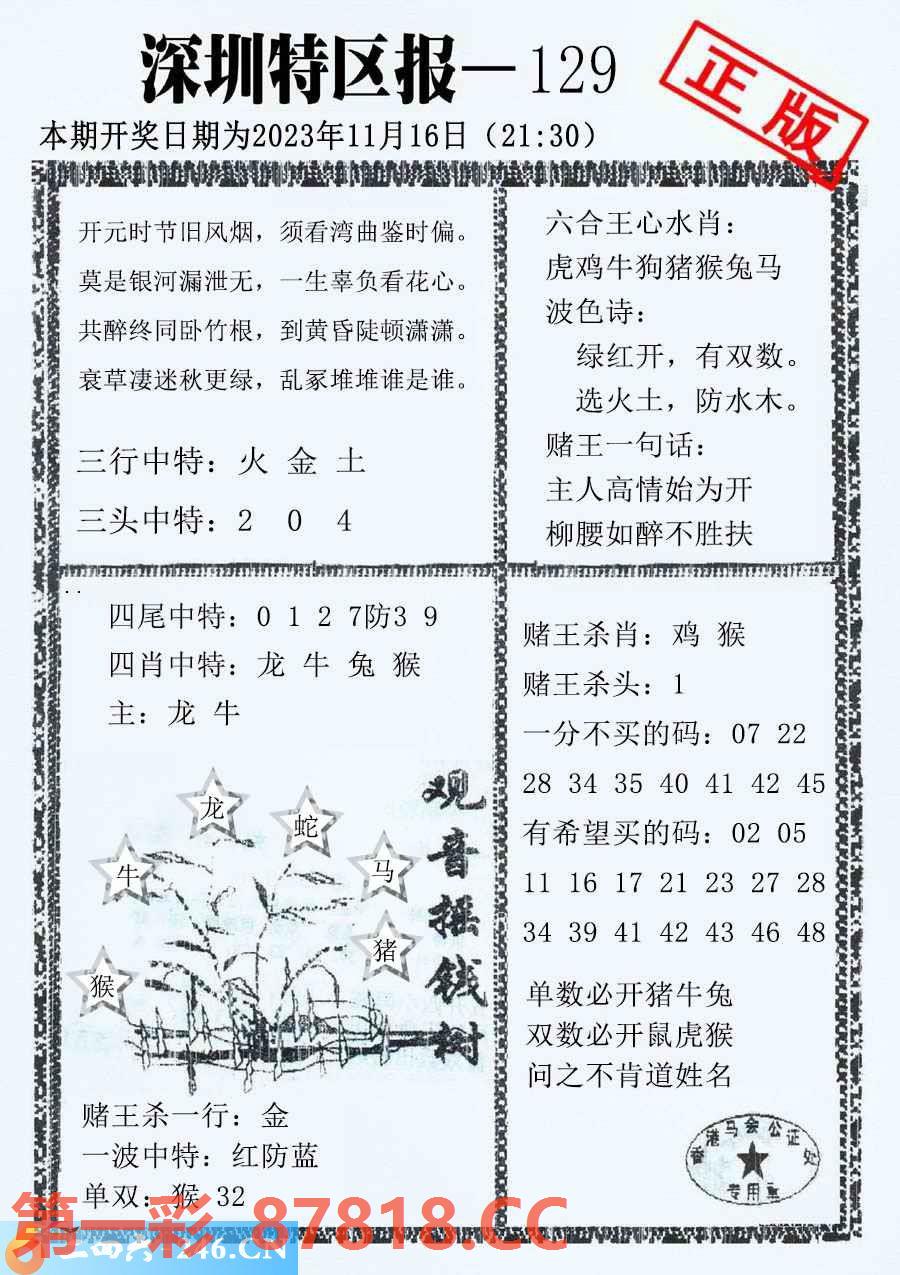 深圳特区报—129
正版
本期开奖日期为2023年11月16日（21:30）
开元时节旧风烟，须看湾曲鉴时偏。
莫是银河漏泄无，一生辜负看花心。
共醉终同卧竹根，到黄昏陡顿潇潇。
衰草凄迷秋更绿，乱冢堆堆谁是谁。
三行中特：火 金 土
三头中特：2 0 4
六合王心水肖：
虎鸡牛狗猪猴兔马
波色诗：
绿红开，有双数。
选火土，防水木。
赌王一句话：
主人高情始为开
柳腰如醉不胜扶
四尾中特：0 1 2 7防3 9
四肖中特：龙 牛 兔 猴
主：龙 牛
龙
蛇
牛
马
猪
猴
观音摇钱树
赌王杀一行：金
一波中特：红防蓝
单双：猴 32
赌王杀肖：鸡 猴
赌王杀头：1
一分不买的码：07 22
28 34 35 40 41 42 45
有希望买的码：02 05
11 16 17 21 23 27 28
34 39 41 42 43 46 48
单数必开猪牛兔
双数必开鼠虎猴
问之不肯道姓名
香港马会公证处
专用章
第一彩 87818.CC
246.CN